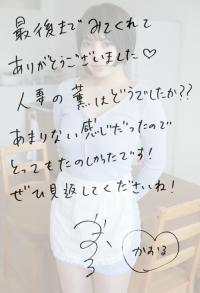 最後までみてくれて
ありがとうございました♡
人妻の薫はどうでしたか??
あまりない感じだったので
とってもたのしかったです!
ぜひ見返してくださいね!
かおる
かおる